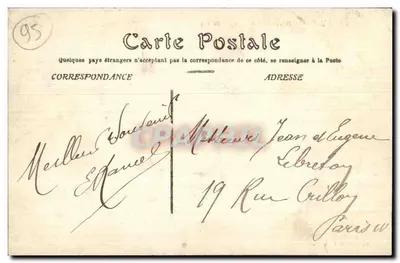 95
Carte Postale
Quelques pays étrangers n'acceptant pas la correspondance de ce côté, se renseigner à la Poste
CORRESPONDANCE
ADRESSE
Meilleur Souvenir
Marcel
Jean et Eugene
Lebreton
19 Rue Crillon
Paris IV